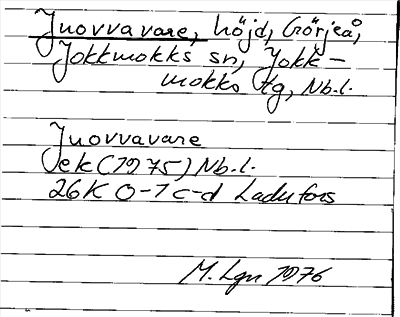 Juovvavare, höjd, Görjeå,
Jokkmokks sn, Jokk-
mokks tg, Nb.l.
Juovvavare
ek (1975) Nb.l.
26K 0-1 c-d Ladufors
M. Lgn 1976